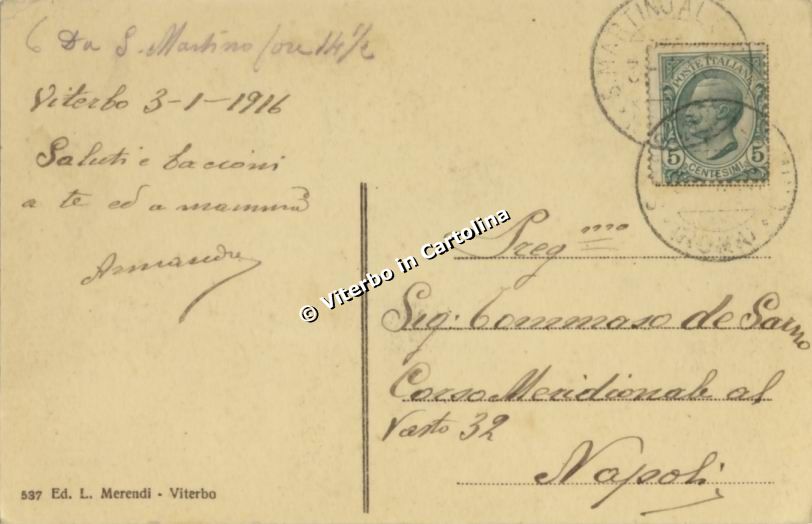 6 Da S. Martino (ore 14 1/2
Viterbo 3-1-1916
Saluti e baccioni
a te ed a mammà
Armando
Preg mo
Sig: Tommaso de Sarno
Corso Meridionale al
Vasto 32
Napoli
537 Ed. L. Merendi - Viterbo
S. MARTINO AL
POSTE ITALIANE
5 5
CENTESIMI
(ROMA)
© Viterbo in Cartolina